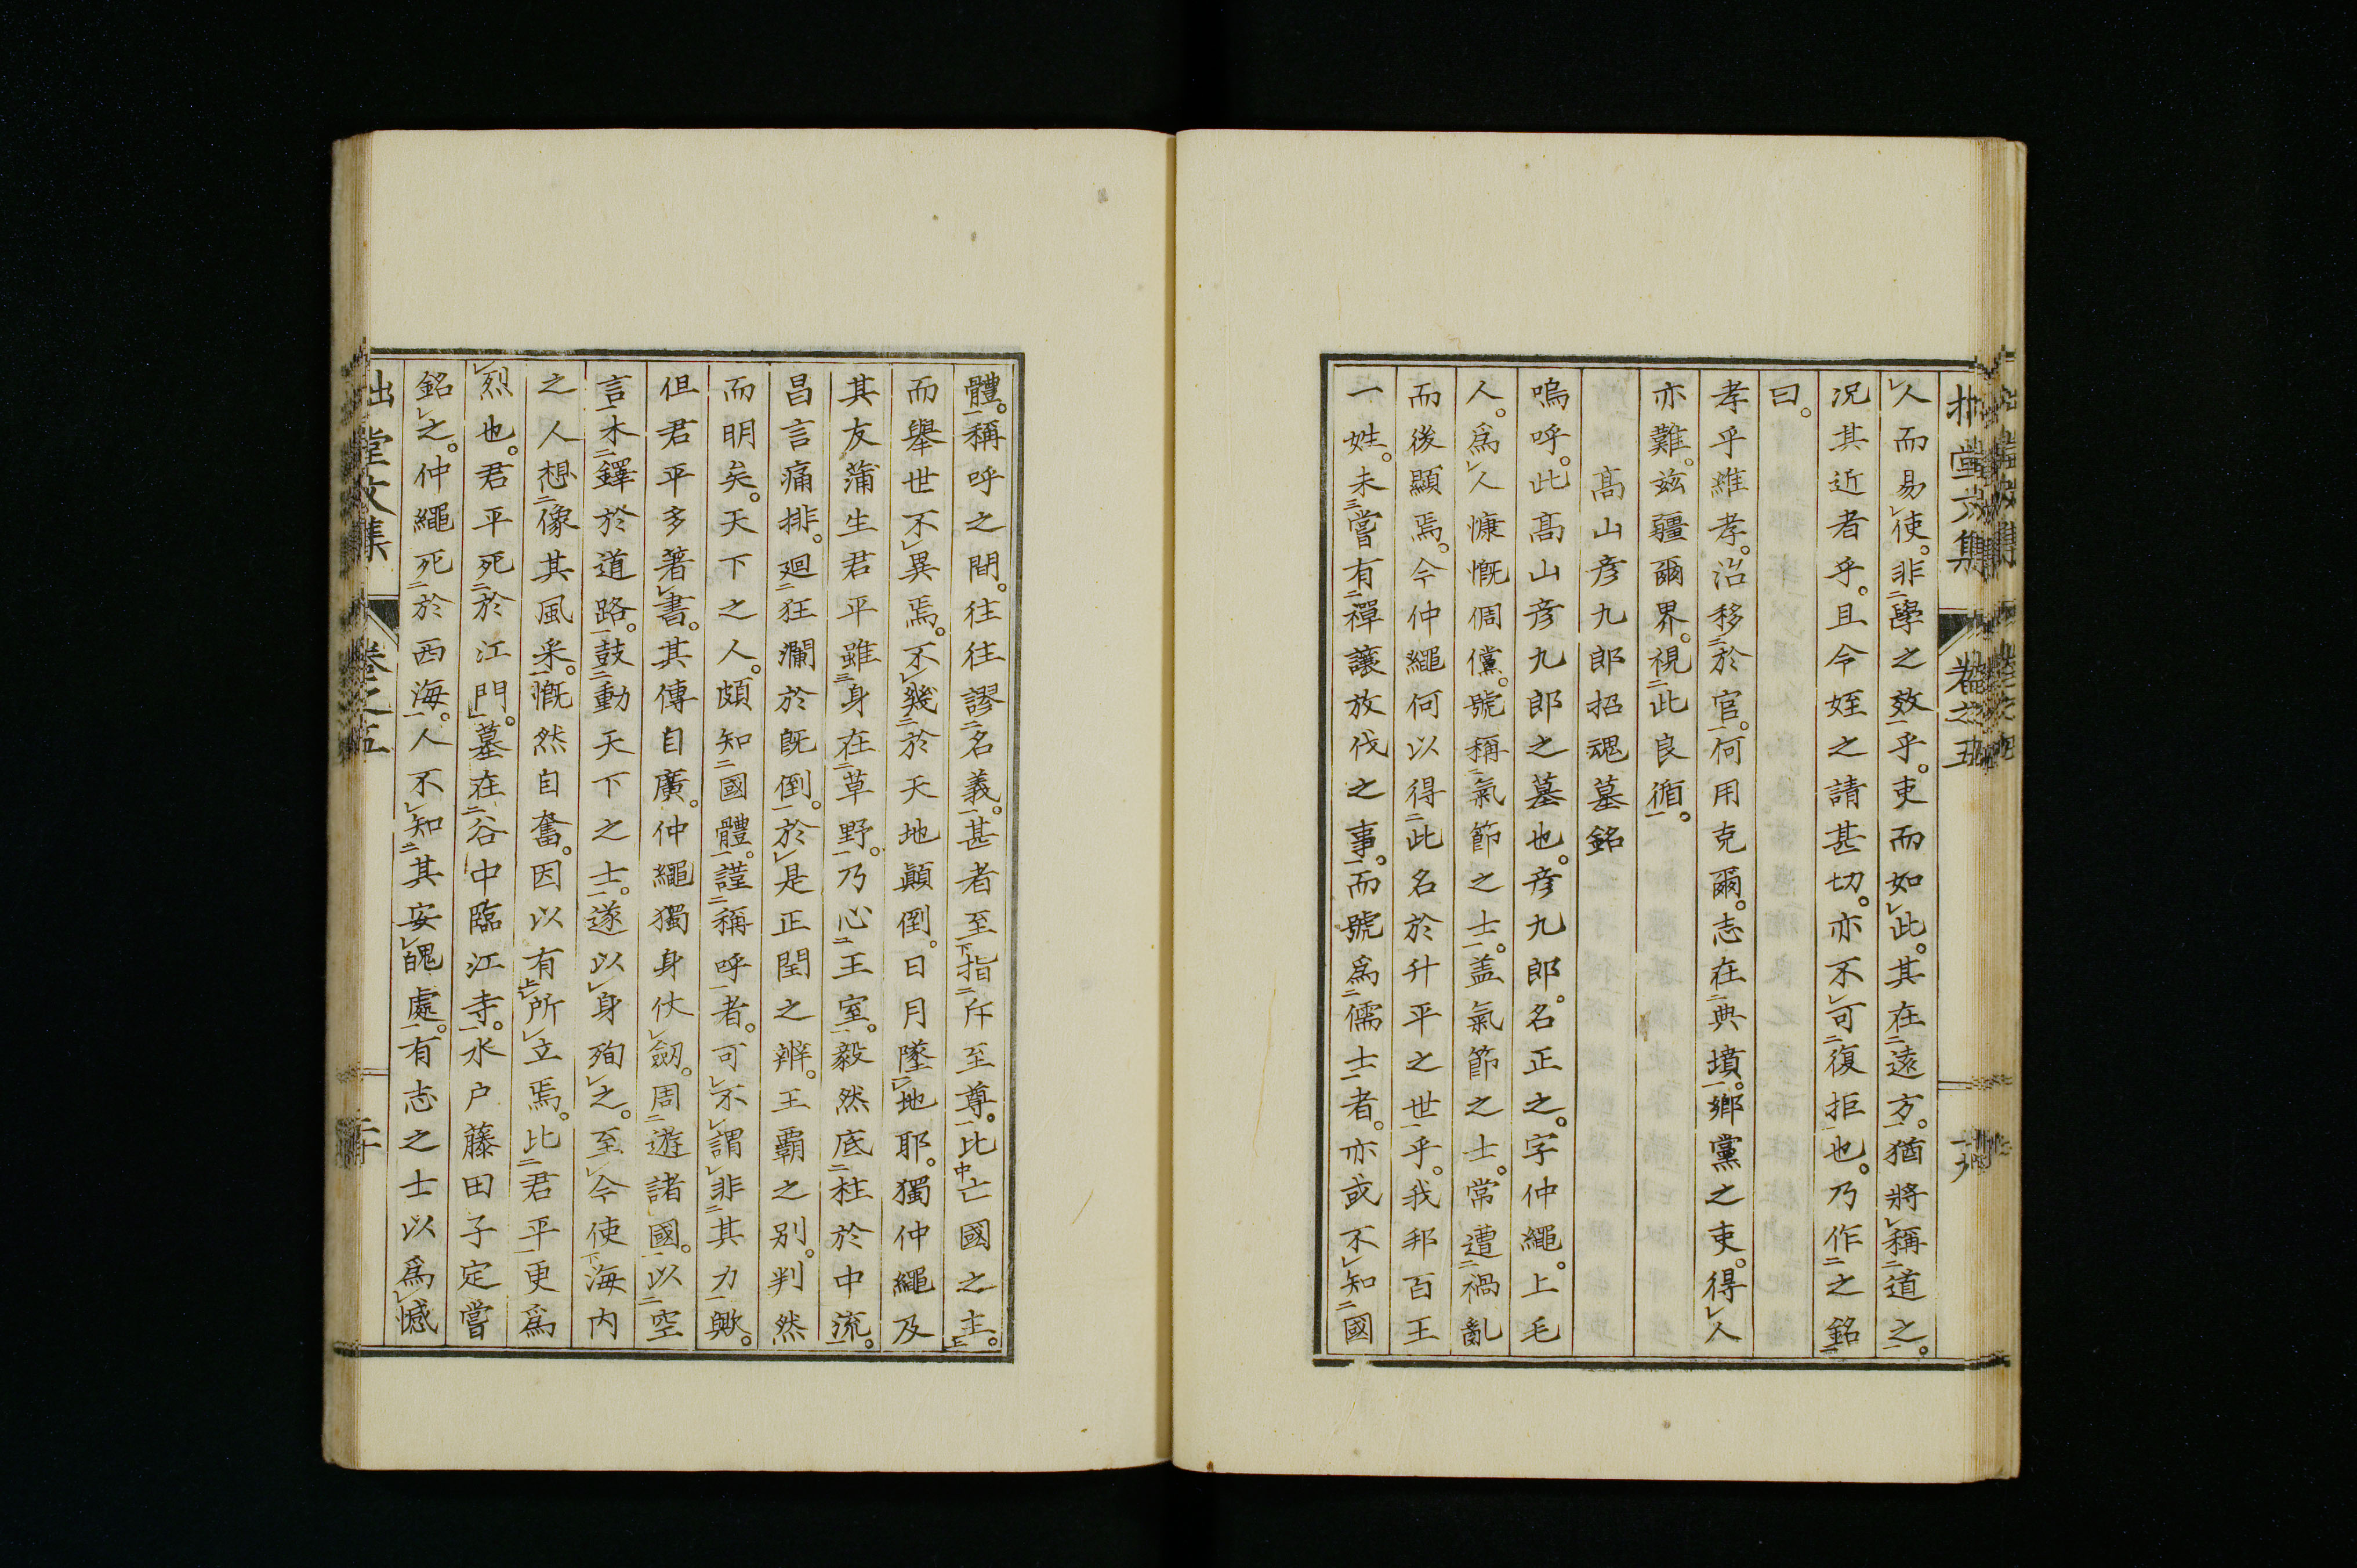 人而易使。非學之效乎。吏而如此。其在遠方。猶將稱道之。
況其近者乎。且今姪之請甚切。亦不可復拒也。乃作之銘
曰。
孝乎維孝。治移於官。何用克爾。志在典墳。鄉黨之吏。得人
亦難。玆疆爾界。視此良循。
高山彥九郎招魂墓銘
嗚呼。此高山彥九郎之墓也。彥九郎。名正之。字仲繩。上毛
人。爲人慷慨倜儻。號稱氣節之士。盖氣節之士。常遭禍亂
而後顯焉。今仲繩何以得此名於升平之世乎。我邦百王
一姓。未嘗有禪讓放伐之事。而號爲儒士者。亦或不知國
體。稱呼之間。往往謬名義。甚者至指斥至尊。比亡國之主。
而舉世不異焉。不幾於天地顚倒。日月墜地耶。獨仲繩及
其友蒲生君平雖身在草野。乃心王室。毅然底柱於中流。
昌言痛排。廻狂瀾於旣倒。於是正閏之辨。王覇之別。判然
而明矣。天下之人。頗知國體。謹稱呼者。可不謂非其力歟。
但君平多著書。其傳自廣。仲繩獨身伏劒。周遊諸國。以空
言木鐸於道路。鼓動天下之士。遂以身殉之。至今使海內
之人想像其風采。慨然自奮。因以有所立焉。比君平更爲
烈也。君平死於江門。墓在谷中臨江寺。水户藤田子定嘗
銘之。仲繩死於西海。人不知其安魄處。有志之士以爲憾
拙堂文集 卷之五